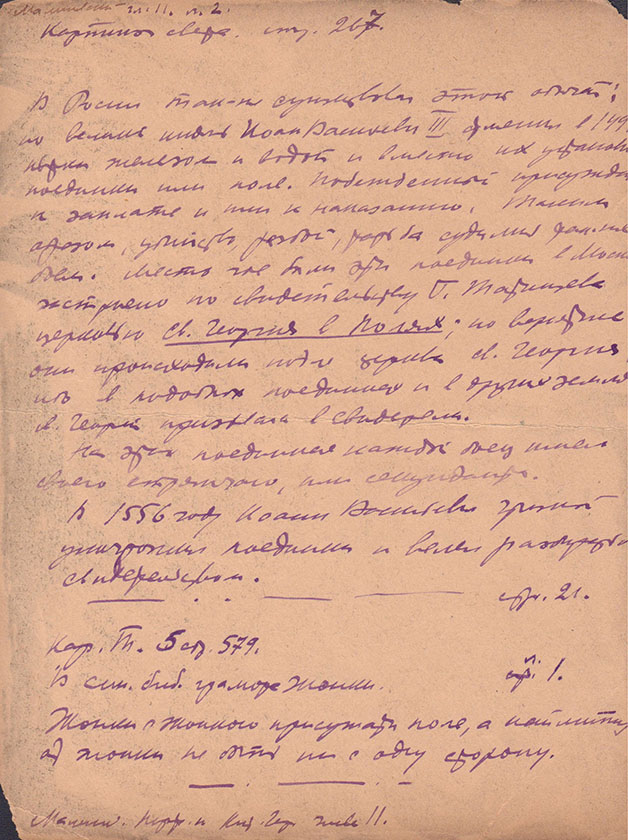 гл. II. п. 2.
Картина света. стр. 267.
В Росии так-же существовал этот обычай;
но великий князь Иоан Васильевич III отменил в 149
железом и водой и вместо их установи
поединки или поле. Побежденный присужда
к заплате и или к наказанию. Таким
образом, убийство, разбой, судились
боем. Место где были эти поединки в Моск
застроено по свидетельству Г. Татищева
церковью св. Георгия в Полях; но вероятнее
они происходили подле церкви св. Георгия,
в подобных поединках и в других земл
св. Георгий призывался в свидетели.
На этих поединках каждый боец имел
своего стряпчего, или секунданта.
В 1556 году Иоанн Васильевич грозной
уничтожил поединки и велел
свидетельством.
стр. 21.
Кар. Т. 5 стр. 579.
В син. биб. грамоте Жонки.
1.
Жонки с жонкою присужати поле, а наймиту
от жонки не быти ни с одну сторону.
II.